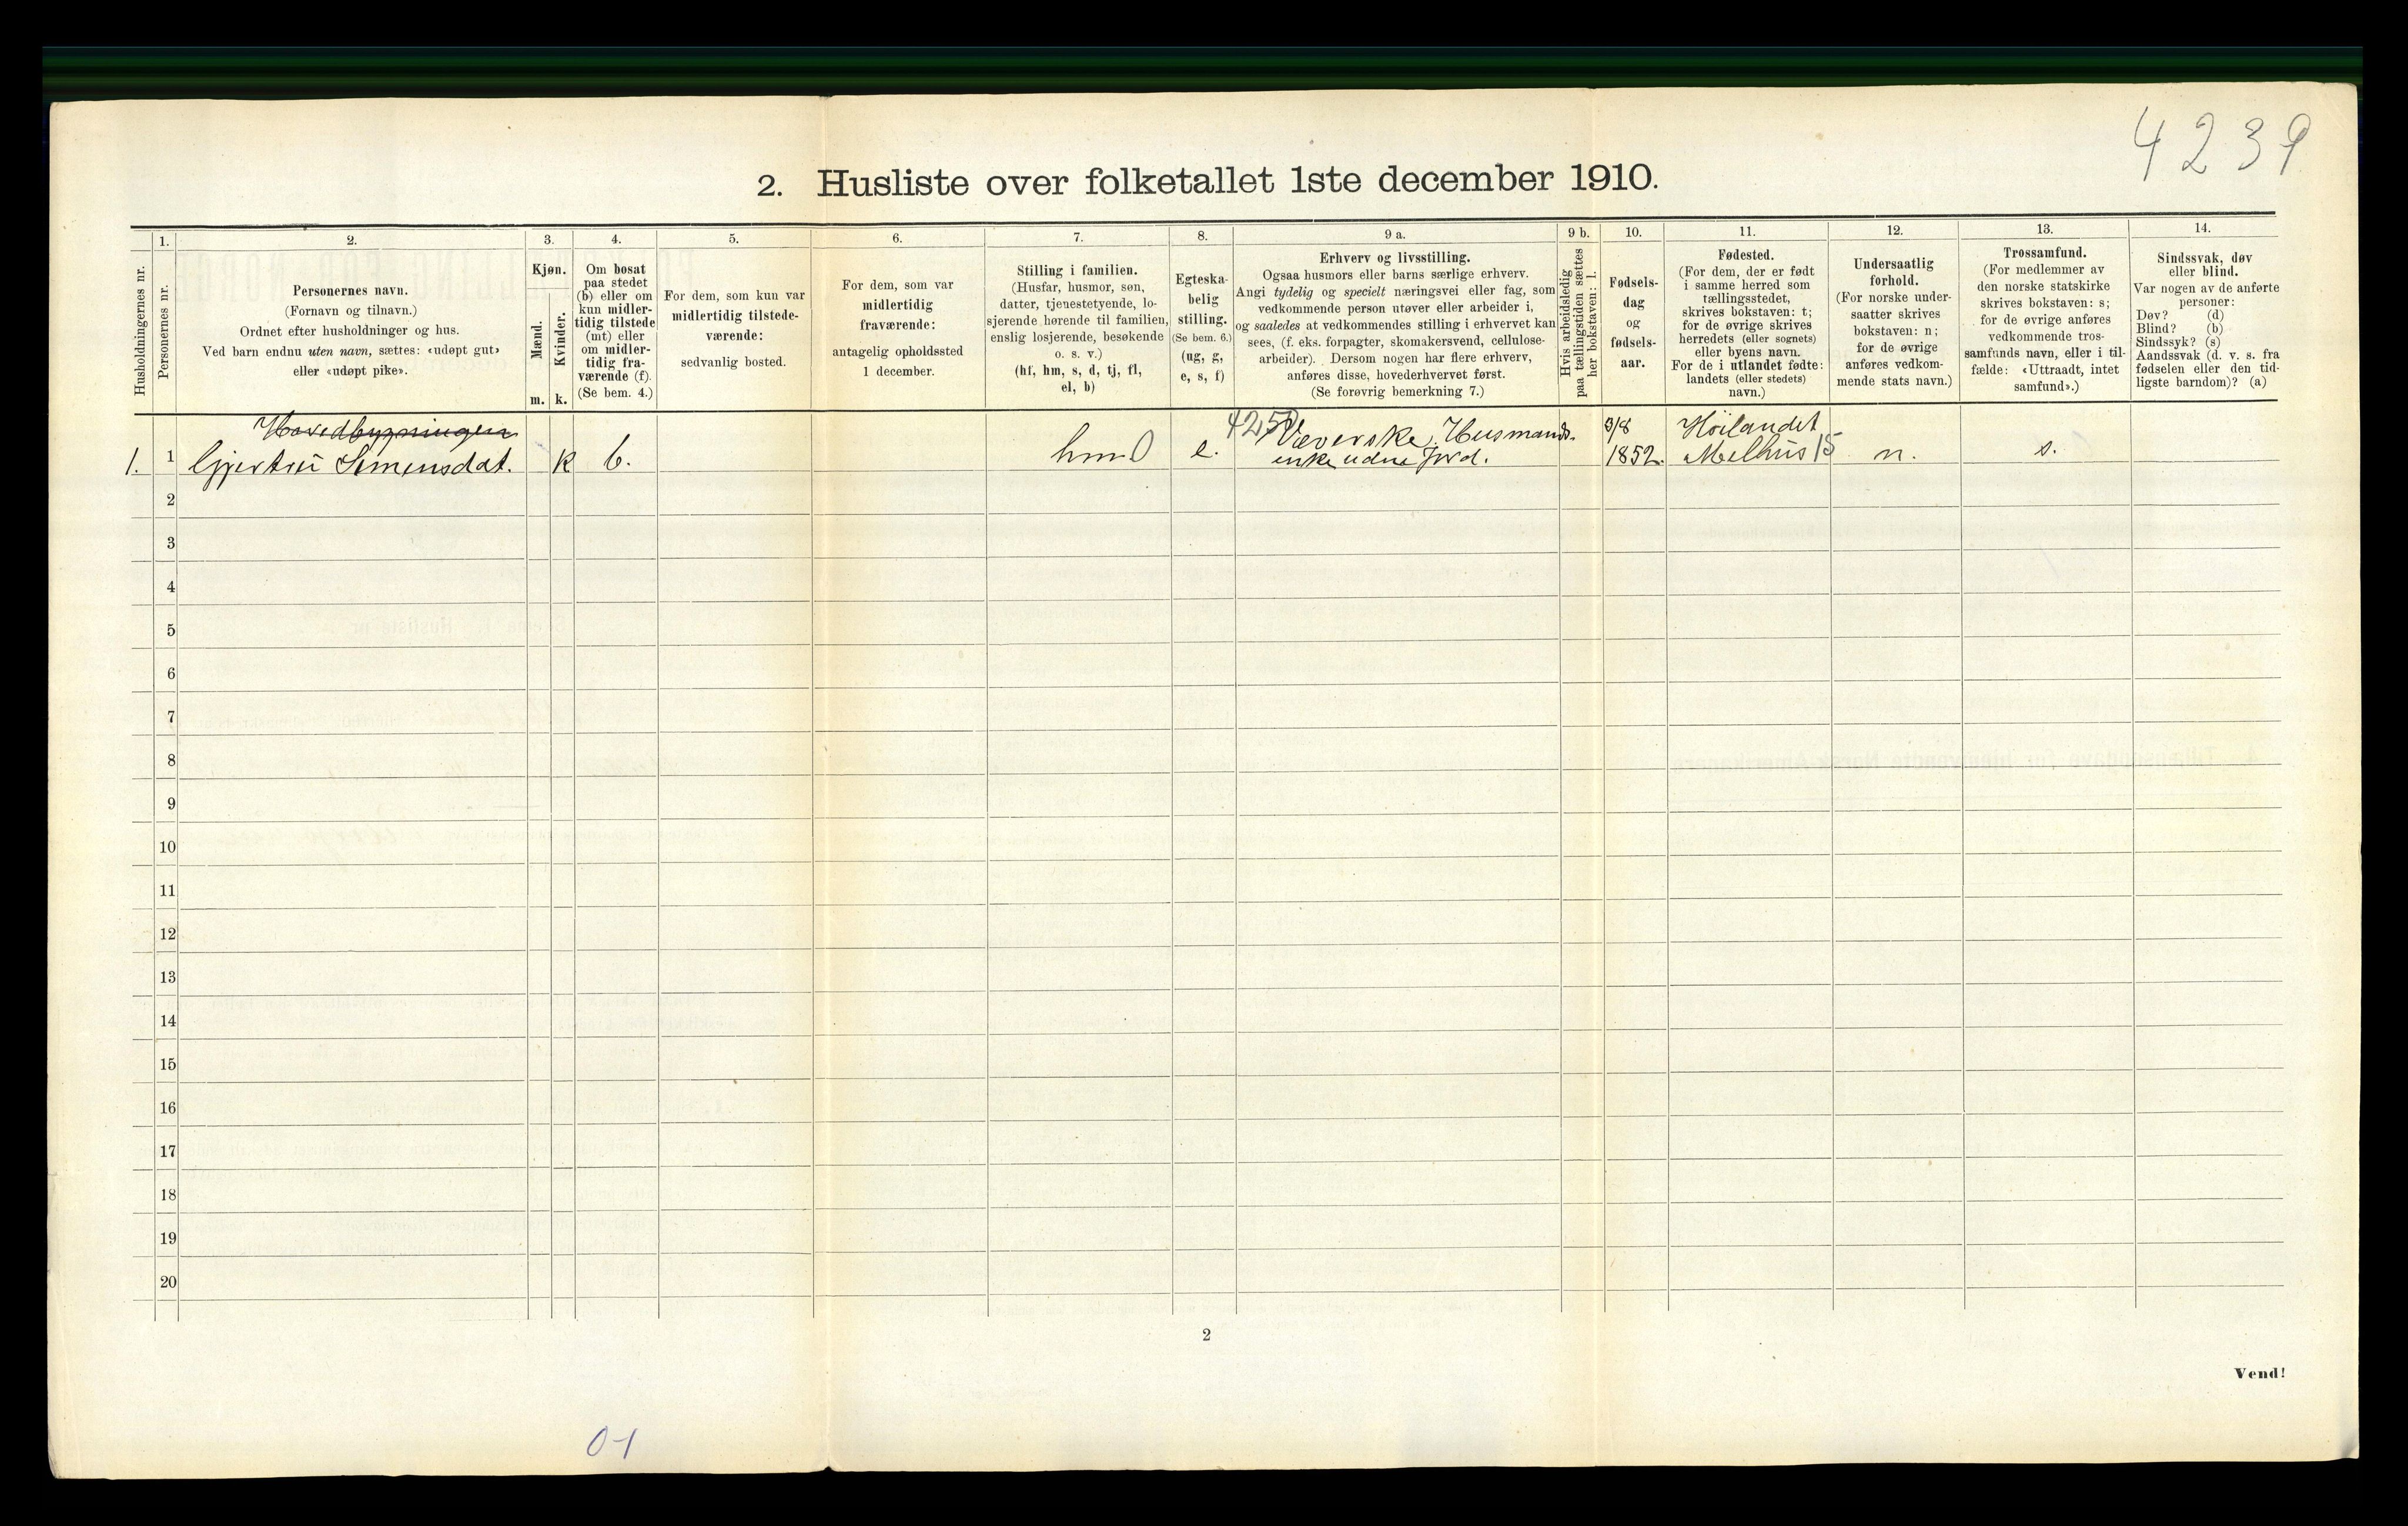 4239
2. Husliste over folketallet 1ste december 1910.
Husholdningernes nr.
1.
Personernes nr.
2.
Personernes navn.
(Fornavn og tilnavn.)
Ordnet efter husholdninger og hus.
Ved barn endnu uten navn, sættes: «udøpt gut»
eller «udøpt pike».
3.
Kjøn.
Mænd.
Kvinder.
m. k.
4.
Om bosat
paa stedet
(b) eller om
kun midler-
tidig tilstede
(mt) eller
om midler-
tidig fra-
værende (f).
(Se bem. 4.)
5.
For dem, som kun var
midlertidig tilstede-
værende:
sedvanlig bosted.
6.
For dem, som var
midlertidig
fraværende:
antagelig opholdssted
1 december.
7.
Stilling i familien.
(Husfar, husmor, søn,
datter, tjenestetyende, lo-
sjerende hørende til familien,
enslig losjerende, besøkende
o. s. v.)
(hf, hm, s, d, tj, fl,
el, b)
8.
Egteska-
belig
stilling.
(Se bem. 6.)
(ug, g,
e, s, f)
9 a.
Erhverv og livsstilling.
Ogsaa husmors eller barns særlige erhverv.
Angi tydelig og specielt næringsvei eller fag, som
vedkommende person utøver eller arbeider i,
og saaledes at vedkommendes stilling i erhvervet kan
sees, (f. eks. forpagter, skomakersvend, cellulose-
arbeider). Dersom nogen har flere erhverv,
anføres disse, hovederhvervet først.
(Se forøvrig bemerkning 7.)
9 b.
Hvis arbeidsledig
paa tællingstiden sættes
her bokstaven: l.
10.
Fødsels-
dag
og
fødsels-
aar.
11.
Fødested.
(For dem, der er født
i samme herred som
tællingsstedet,
skrives bokstaven: t;
for de øvrige skrives
herredets (eller sognets)
eller byens navn.
For de i utlandet fødte:
landets (eller stedets)
navn.)
12.
Undersaatlig
forhold.
(For norske under-
saatter skrives
bokstaven: n;
for de øvrige
anføres vedkom-
mende stats navn.)
13.
Trossamfund.
(For medlemmer av
den norske statskirke
skrives bokstaven: s;
for de øvrige anføres
vedkommende tros-
samfunds navn, eller i til-
fælde: «Uttraadt, intet
samfund».)
14.
Sindssvak, døv
eller blind.
Var nogen av de anførte
personer:
Døv? (d)
Blind? (b)
Sindssyk? (s)
Aandssvak (d. v. s. fra
fødselen eller den tid-
ligste barndom)? (a)
Hovedbygningen 425 Væverske, Husmands- 3/8 Höilandet
1. 1 Gjertru Simensdat. k b. hm 0 e. enke uden Jord. 1852. Melhus 15 n. s.
2
3
4
5
6
7
8
9
10
11
12
13
14
15
16
17
18
19
20
2
Vend!
0-1